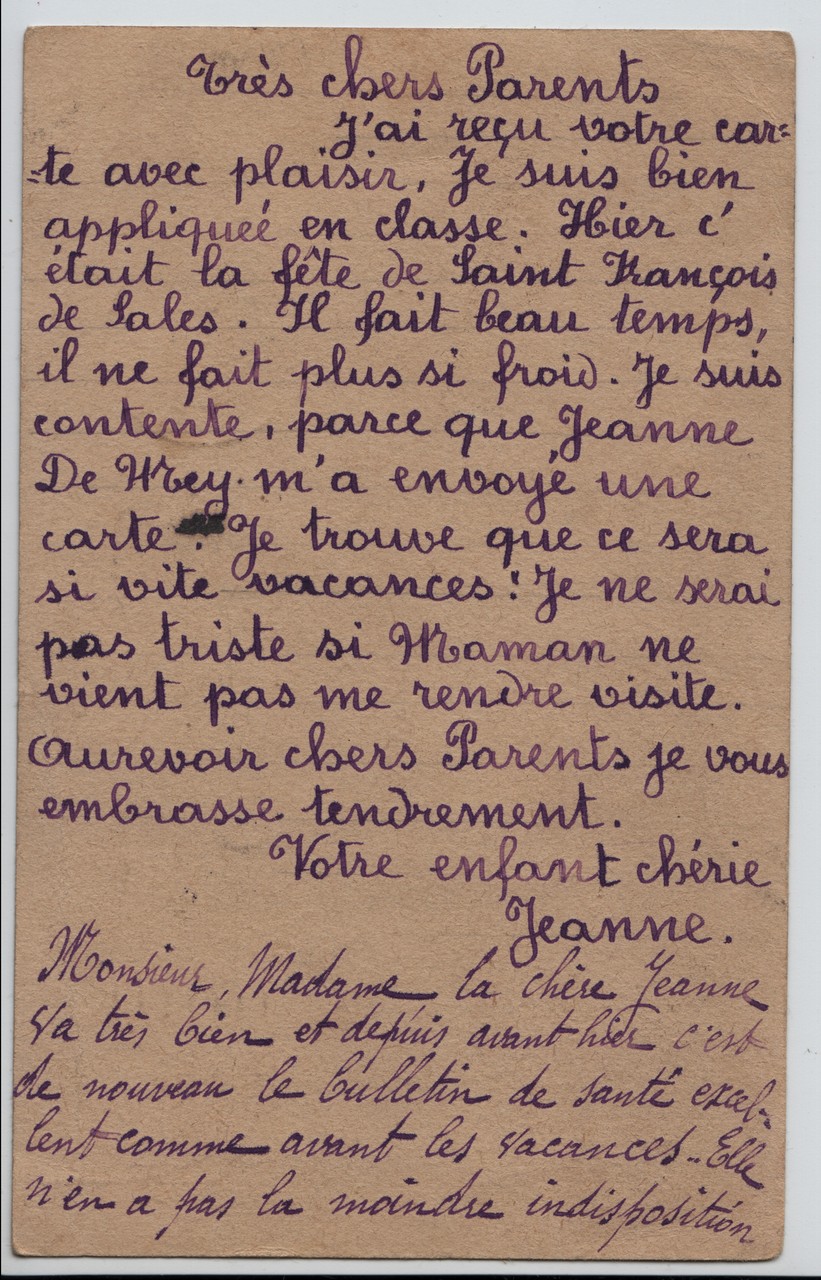 Très chers Parents
J'ai reçu votre car=
=te avec plaisir, Je suis bien
appliqueé en classe. Hier c'
était la fête de Saint François
de Sales. Il fait beau temps,
il ne fait plus si froid. Je suis
contente, parce que Jeanne
De Mey m'a envoyé une
carte. Je trouve que ce sera
si vite vacances! Je ne serai
pas triste si Maman ne
vient pas me rendre visite.
Aurevoir chers Parents je vous
embrasse tendrement.
Votre enfant chérie
Jeanne.
Monsieur, Madame la chère Jeanne
va très bien et depuis avant hier c'est
de nouveau le bulletin de santé excel-
lent comme avant les vacances.. Elle
n'en a pas la moindre indisposition